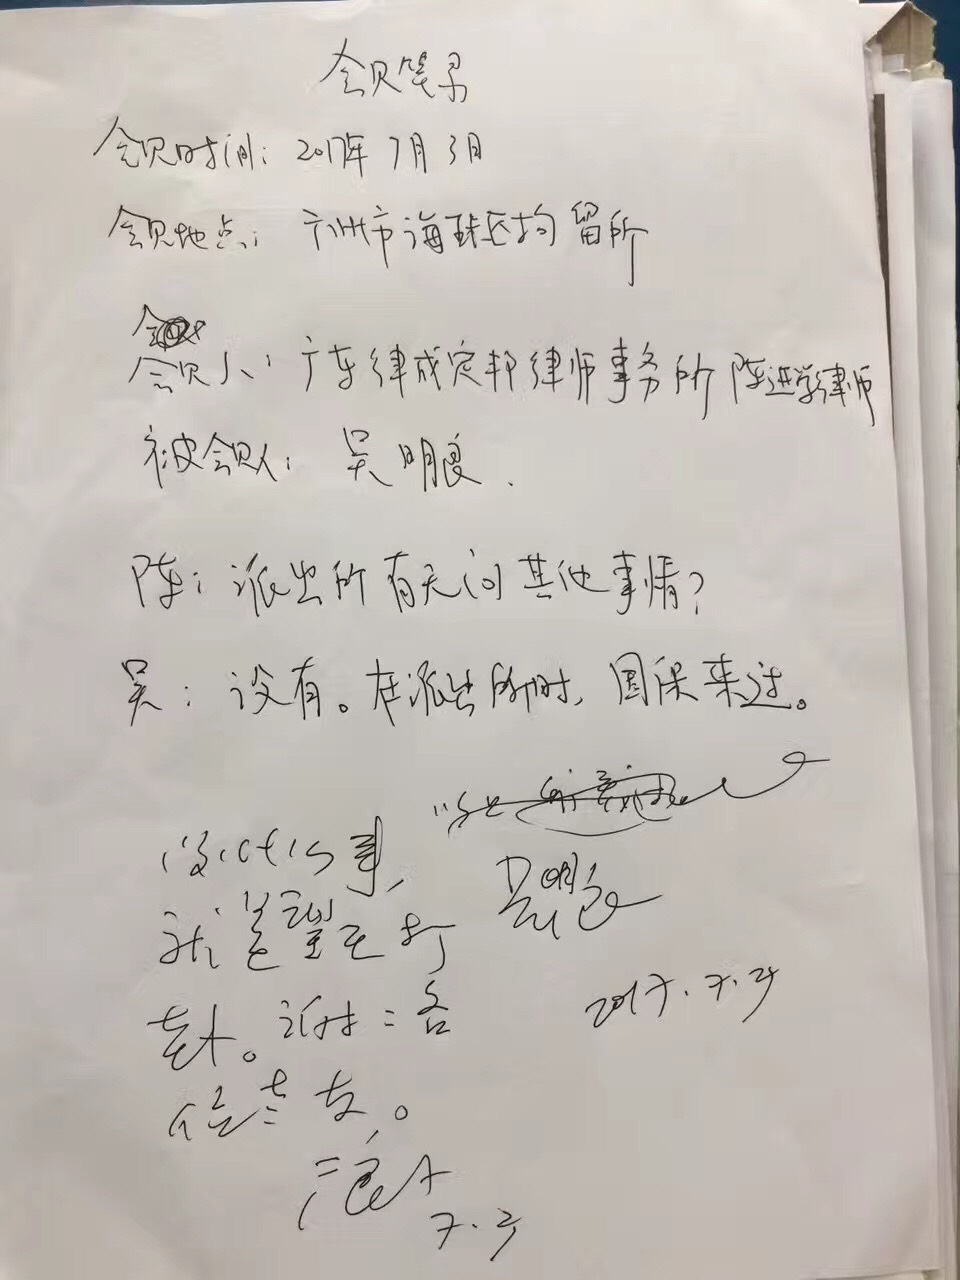 会见笔录
会见时间：2017年7月3日
会见地点：广州市海珠区拘留所
会见人：广东律成定邦律师事务所陈进学律师
被会见人：吴明良.
陈：派出所有无问其他事情？
吴：没有。在派出所时，国保来过。
没什么事，
吴明良
2017.7.3
就是
谢谢各
位老友。
7.3